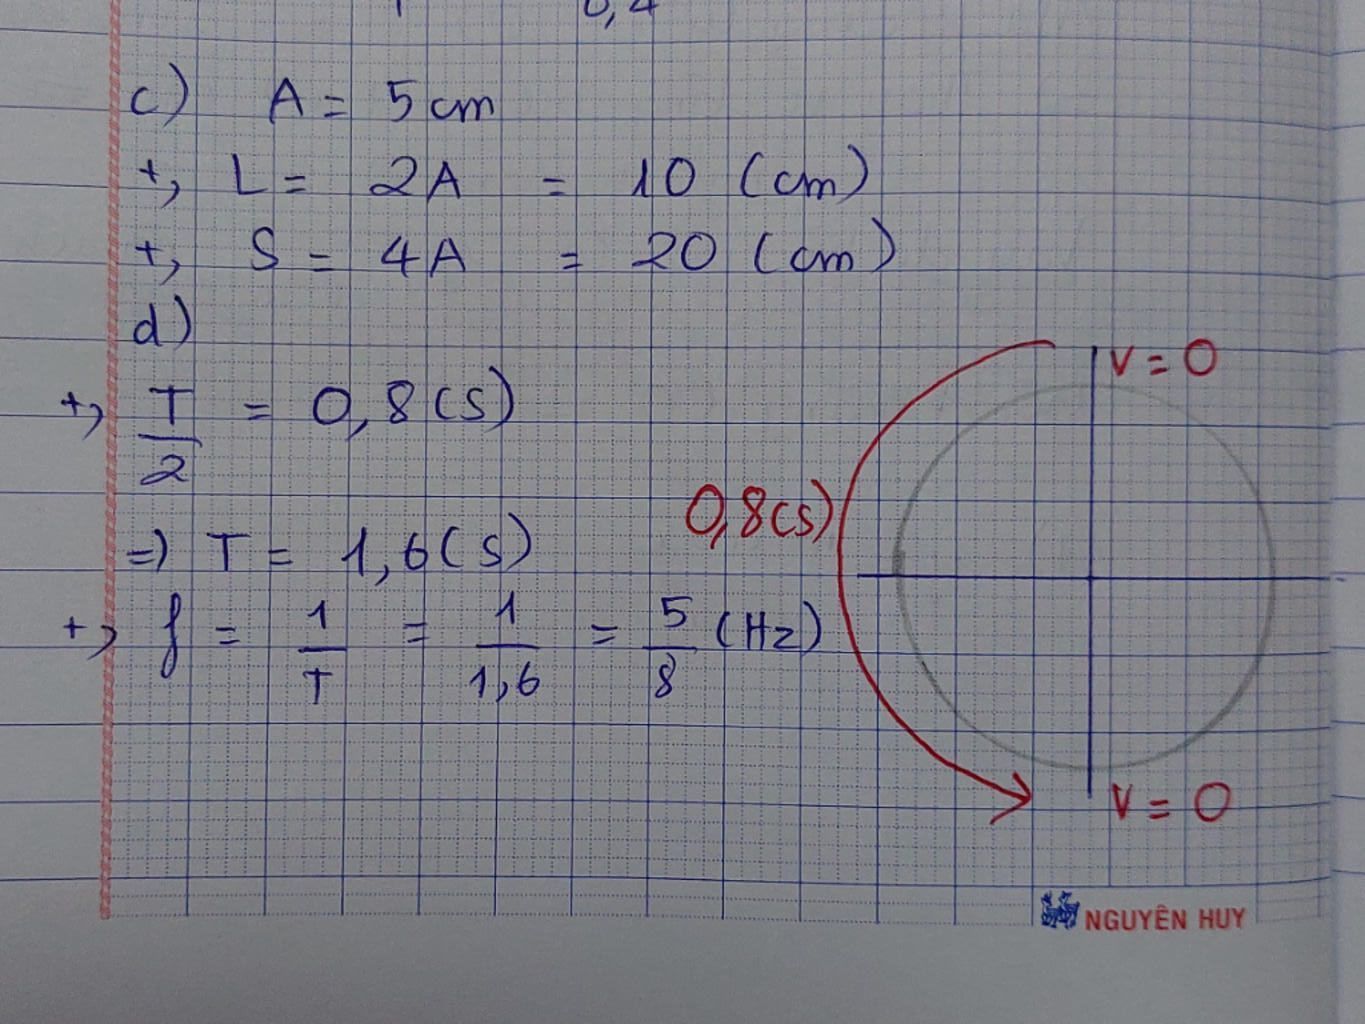 0,4
c) A = 5 cm
+, L = 2A = 10 (cm)
+, S = 4A = 20 (cm)
d)
+, T/2 = 0,8 (s)
=) T = 1,6 (s)
+, f = 1/T = 1/1,6 = 5/8 (Hz)
v = 0
0,8 (s)
v = 0
NGUYÊN HUY